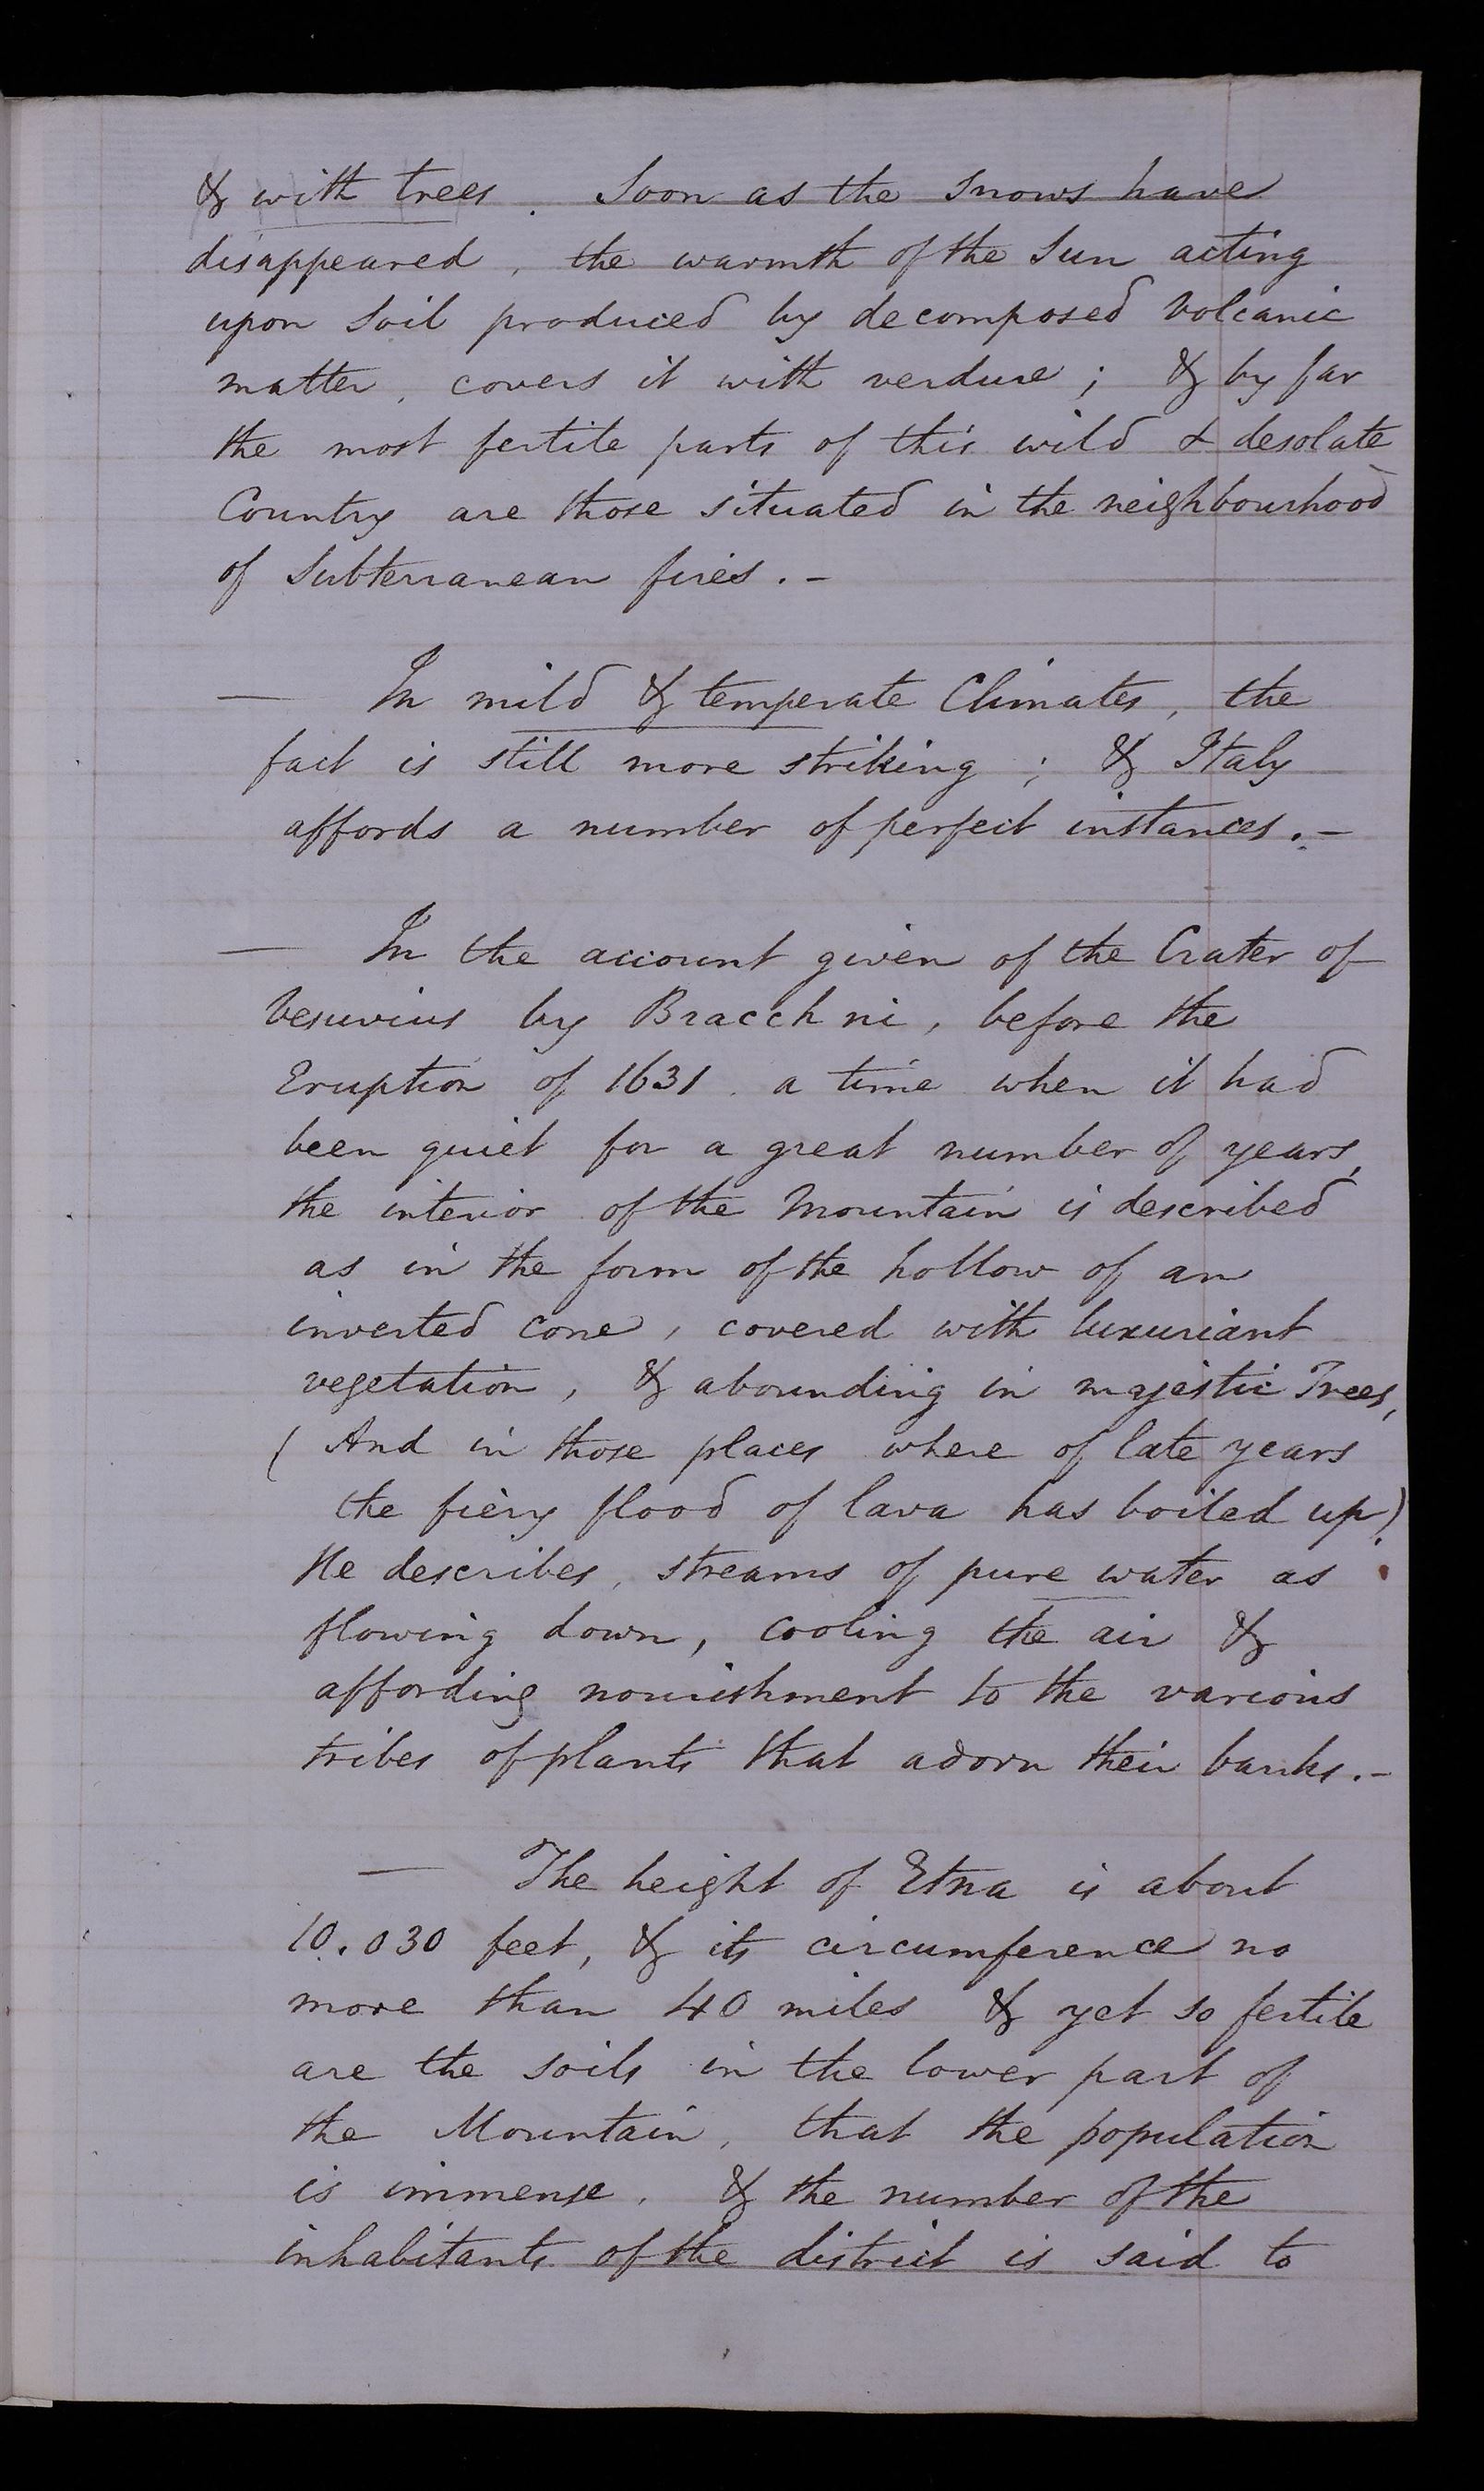 & with trees. Soon as the Snows have
disappeared, the warmth of the Sun acting
upon Soil produced by decomposed Volcanic
matter, covers it with verdure; & by far
the most fertile parts of this wild & desolate
Country are those situated in the neighbourhood
of Subterranean fires. -
— In mild & temperate Climates, the
fact is still more striking; & Italy
affords a number of perfect instances. -
— In the account given of the Crater of
Vesuvius by Bracchni, before the
Eruption of 1631. a time when it had
been quiet for a great number of years,
the interior of the Mountain is described
as in the form of the hollow of an
inverted cone, covered with luxuriant
vegetation, & abounding in majestic Trees,
( And in those places where of late years
the fiery flood of lava has boiled up)
He describes, streams of pure water as
flowing down, cooling the air &
affording nourishment to the various
tribes of plants that adorn their banks. -
— The height of Etna is about
10.030 feet, & its circumference no
more than 40 miles & yet so fertile
are the soils in the lower part of
the Mountain, that the population
is immense. & the number of the
inhabitants of the district is said to